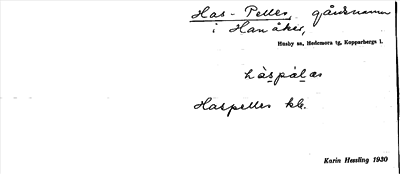 Has-Pelles, gårdsnamn
i Hanåker,
Husby sn, Hedemora tg, Kopparbergs l.
hàspál æs
Haspelles kb.
Karin Hessling 1930